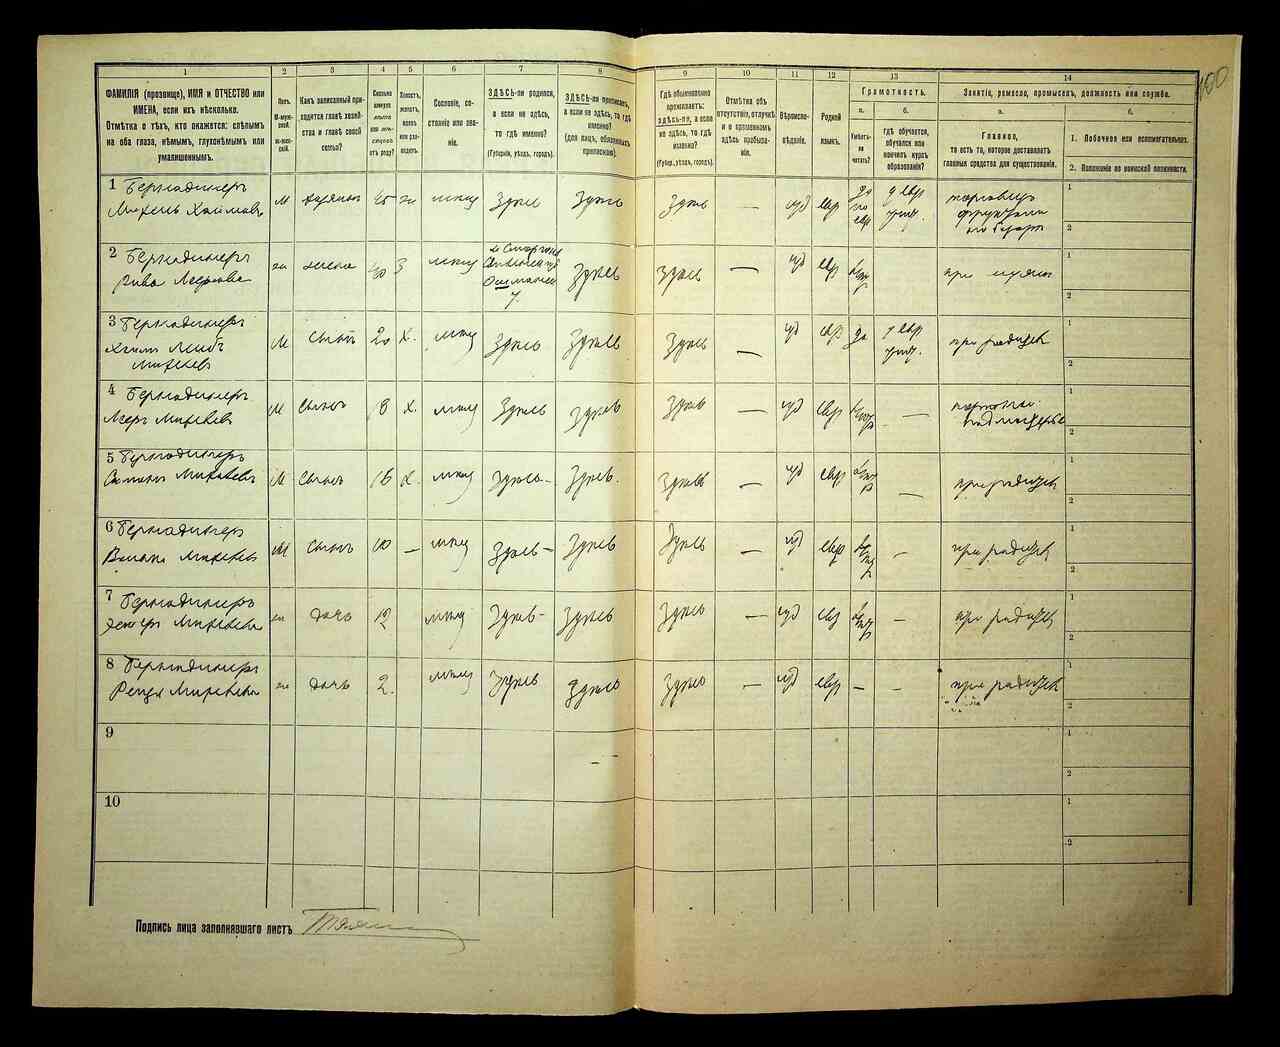 100
1 2 3 4 5 6 7 8 9 10 11 12 13 14
ФАМИЛІЯ (прозвище), ИМЯ и ОТЧЕСТВО или
ИМЕНА, если ихъ нѣсколько.
Отмѣтка о тѣхъ, кто окажется: слѣпымъ
на оба глаза, нѣмымъ, глухонѣмымъ или
умалишеннымъ.
Полъ.
М-муж-
ской.
Ж-жен-
скій.
Какъ записанный при-
ходится главѣ хозяй-
ства и главѣ своей
семьи?
Сколько
минуло
лѣтъ
или мѣ-
сяцевъ
отъ роду?
Холостъ,
женатъ,
вдовъ
или раз-
веденъ.
Сословіе, со-
стояніе или зва-
ніе.
ЗДѢСЬ-ли родился,
а если не здѣсь,
то гдѣ именно?
(Губернія, уѣздъ, городъ).
ЗДѢСЬ-ли приписанъ,
а если не здѣсь, то гдѣ
именно?
(для лицъ, обязанныхъ
припискою).
Гдѣ обыкновенно
проживаетъ:
здѣсь-ли, а если
не здѣсь, то гдѣ
именно?
(Губер., уѣздъ, городъ).
Отмѣтка объ
отсутствіи, отлучкѣ
и о временномъ
здѣсь пребыва-
ніи.
Вѣроиспо-
вѣданіе.
Родной
языкъ.
Грамотность.
а.
Умѣетъ-
ли
читать?
б.
гдѣ обучается,
обучался или
кончилъ курсъ
образованія?
Занятіе, ремесло, промыселъ, должность или служба.
а.
Главное,
то есть то, которое доставляетъ
главныя средства для существованія.
б.
1. Побочное или вспомогательное.
2. Положеніе по воинской повинности.
1 Бернадинеръ
Михель Хаимовъ М хозяинъ 45 ж мѣщ Здѣсь Здѣсь Здѣсь — іуд евр да по евр у евр учит. торговецъ фруктами
2 Бернадинеръ
Рива ж жена 40 З мѣщ м Сморгонь Виленской Ошмянск у. Здѣсь Здѣсь — іуд евр при мужѣ
3 Бернадинеръ
Хаимъ Лейбъ
Михелевъ М сынъ 20 Х. мѣщ Здѣсь Здѣсь Здѣсь — іуд евр да у евр учит. при родител
4 Бернадинеръ
Мееръ Михелевъ М сынъ 18 Х. мѣщ Здѣсь Здѣсь Здѣсь — іуд евр — подмастерье
5 Бернадинеръ
Михелевъ М сынъ 16 Х. мѣщ Здѣсь — Здѣсь. Здѣсь — іуд евр — при родител
6 Бернадинеръ
Михелевъ М сынъ 10 — мѣщ Здѣсь — Здѣсь Здѣсь — іуд евр — при родител
7 Бернадинеръ
Эстеръ Михелева ж дочь 12 мѣщ Здѣсь - Здѣсь Здѣсь — іуд евр — при родител
8 Бернадинеръ
Михелева ж дочь 2. мѣщ Здѣсь Здѣсь Здѣсь — іуд евр — — при родител
9
10
1
2
1
2
1
2
1
2
1
2
1
2
1
2
1
2
1
2
1
2
Подпись лица заполнявшаго листъ